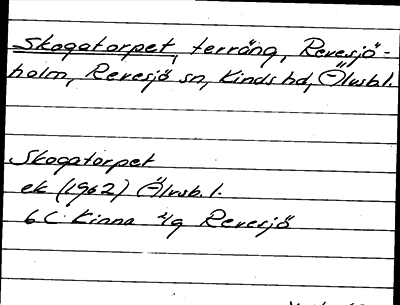 Skogatorpet, terräng, Revesjö-
holm, Revesjö sn, Kinds hd, Älvsb.l.
Skogatorpet
ek (1962) Älvsb.l.
6C Kinna 4g Revesjö